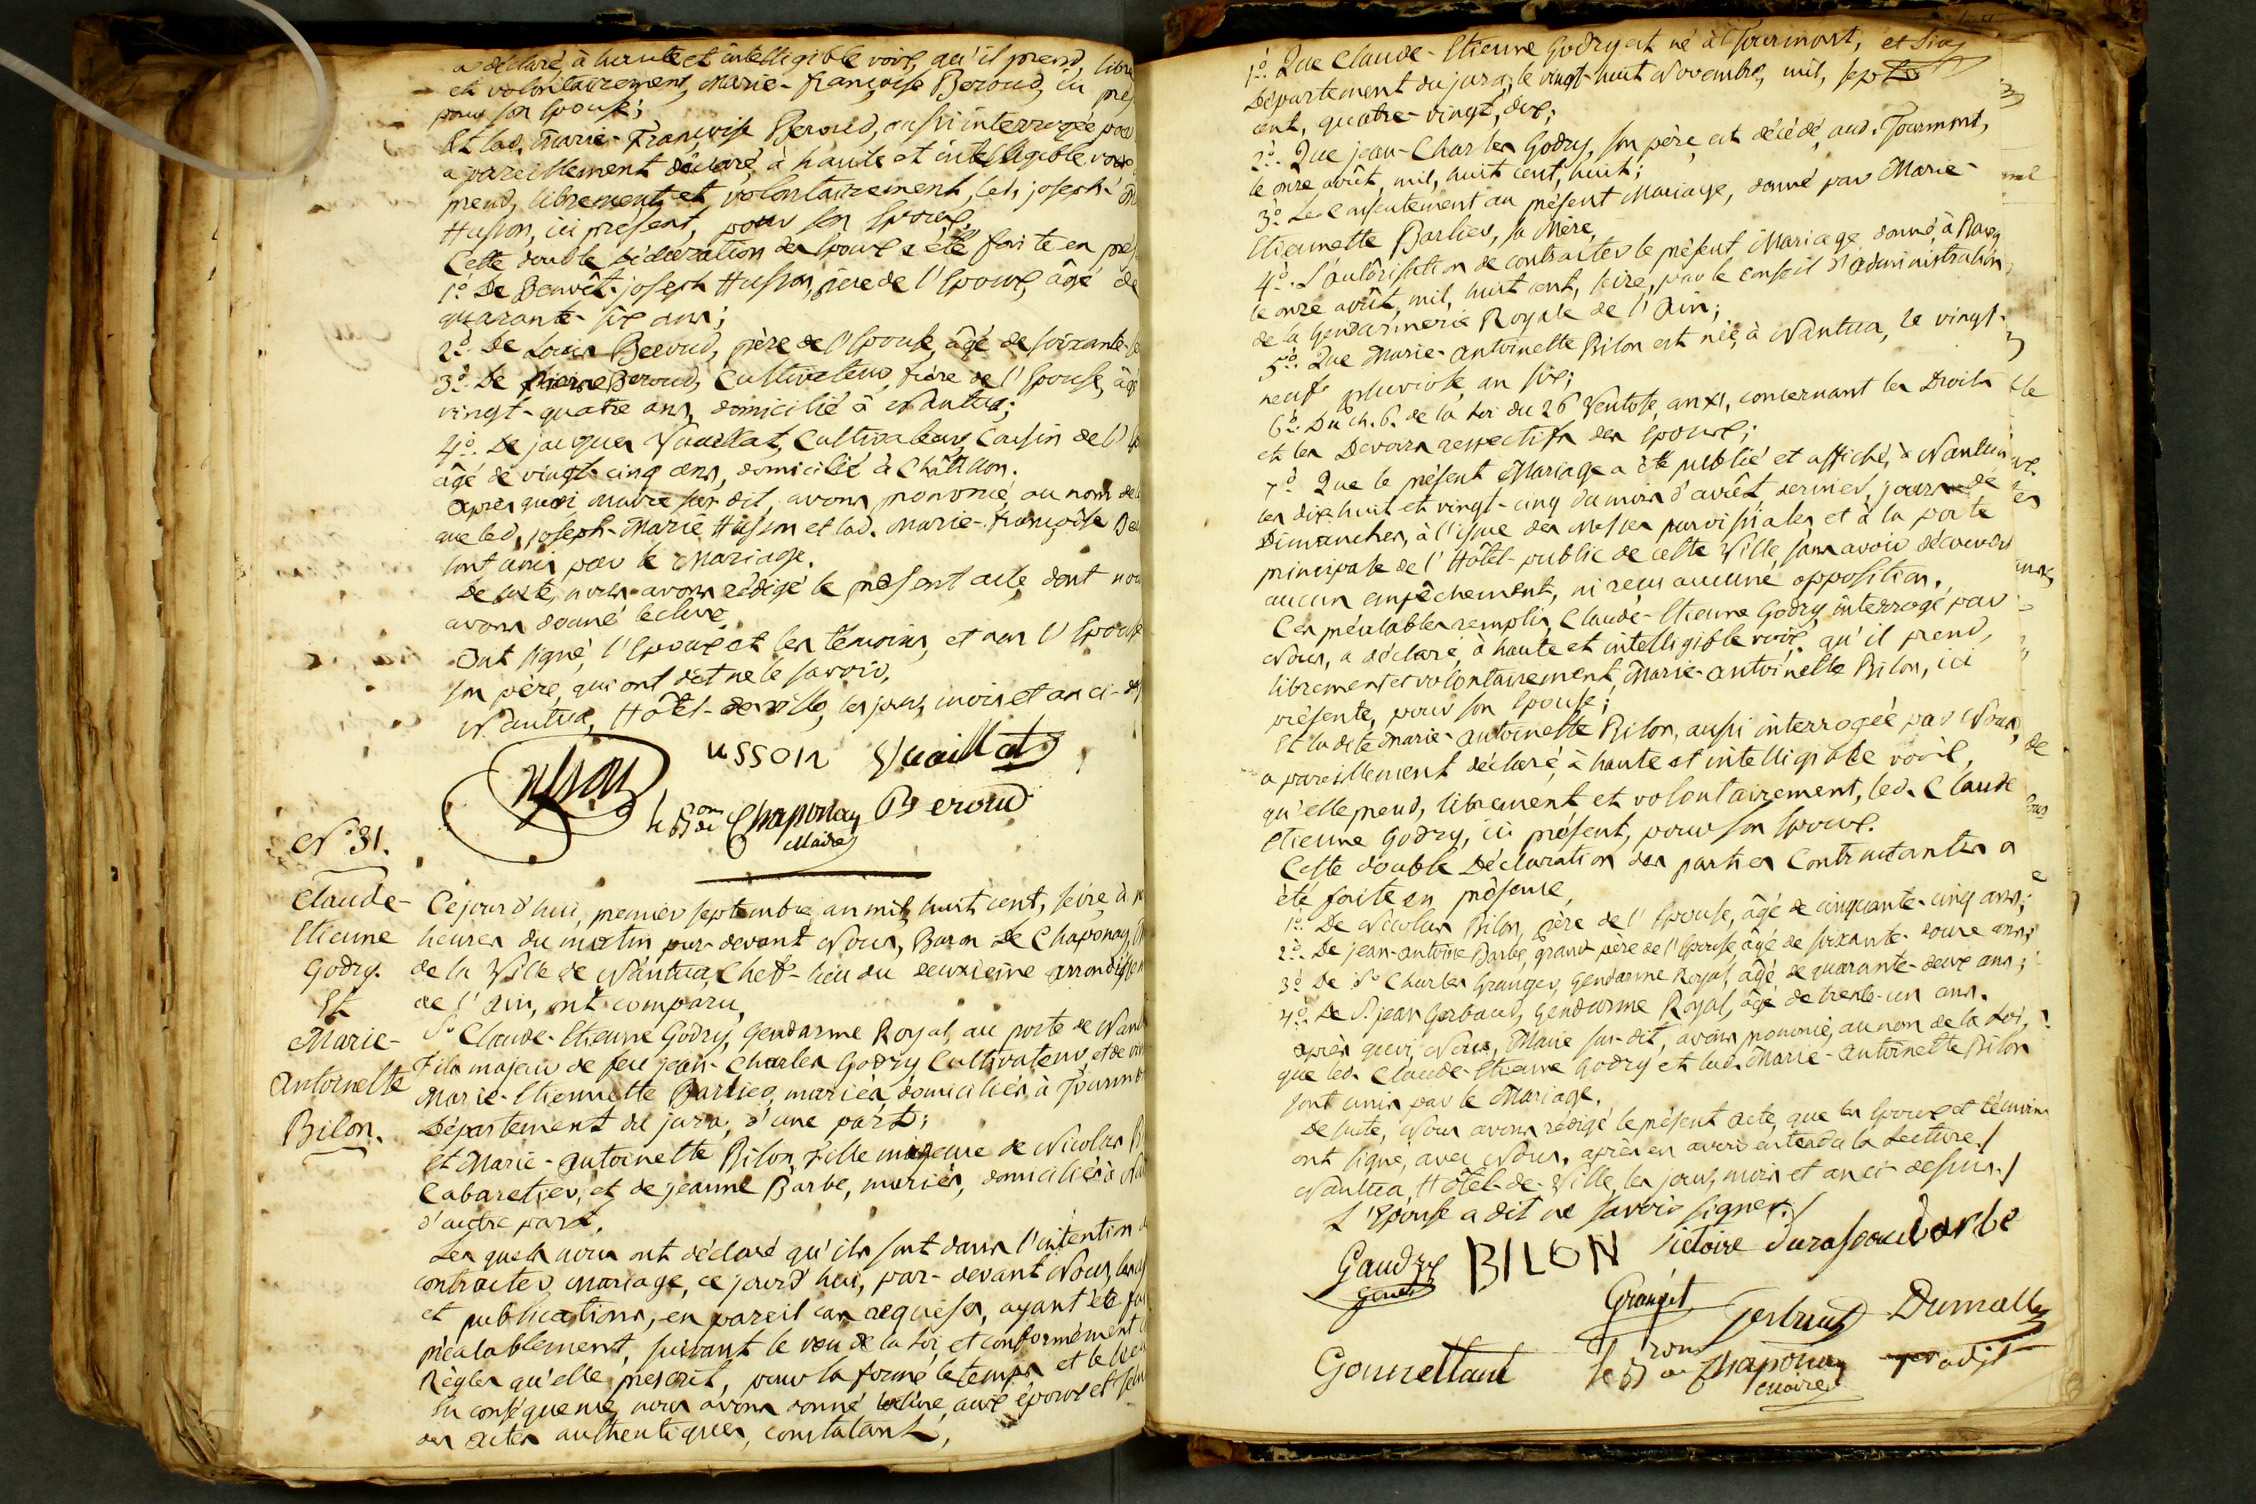 a déclaré à haute et intelligible voix, qu'il prend, libre
et volontairement, Marie-françoise Beroud, ici pré
pour son Epouse;
Et lad. Marie-Françoise Beroud, aussi interrogée par
a pareillement déclaré, à haute et intelligible voix
prend, librement et volontairement, led. joseph
Husson, ici présent, pour son Epoux.
Cette double déclaration des Epoux a été faite en pré
1.° De Benoît-joseph Husson, père de l'Epoux, âgé de
quarante-six ans;
2.° De Louis Beroud, père de l'Epouse, âgé de soixante
3.° De Pierre Beroud, Cultivateur, frère de l'Epouse, âgé
vingt-quatre ans, domicilié à Nantua;
4.° De jacques Vuaillat, Cultivateur, Cousin de l'
âgé de vingt-cinq ans, domicilié à Châtillon.
après quoi, Maire sus-dit, avons prononcé, au nom de
que led. joseph-Marie Husson et lad. Marie-françoise Be
sont unis par le Mariage.
De suite, nous avons rédigé le présent acte, dont nou
avons donné lecture.
Ont signé, l'Epoux et les témoins, et non l'Epouse
son père, qui ont dit ne le savoir,
Nantua, Hôtel-de-ville, les jour, mois et an ci-de
usson Vuaillat
le B.on de Chaponay Beroud
Maire
N.° 31.
Claude-
Etienne
Godry.
Et
Marie-
Antoinette
Bilon.
Cejourd'hui, premier septembre, an mil, huit cent, seize, à
heures du matin, par-devant Nous, Baron De Chaponay,
de la Ville de Nantua, Chef-lieu du deuxième arrondissem
de l'Ain, ont comparu,
S.r Claude-Etienne Godry, Gendarme Royal, au poste de Nan
Fils majeur de feu jean-Charles Godry Cultivateur, et de
Marie-Etiennette Barlier, mariés, domiciliés à Tourmo
Département du jura, d'une part;
Et Marie-antoinette Bilon, Fille mineure de Nicolas B
Cabaretier, et de jeanne Barbe, mariés, domiciliés à Na
d'autre part.
Les quels nous ont déclaré qu'ils sont dans l'intention d
contracter Mariage, ce jourd'hui, par-devant Nous, les
et publications, en pareil cas requises, ayant été fai
préalablement, suivant le vœu de la Loi, et conformément
Règles qu'elle prescrit, pour la forme, le temps et le lieu
En conséquence, nous avons donné lecture, aux époux et
des actes authentiques, constatant,
1.° Que Claude-Etienne Godry est né à Tourmont,
Département du jura, le vingt-huit Novembre, mil, sept
cent, quatre-vingt, dix;
2.° Que jean-Charles Godry, son père, est décédé, aud. Tourmont,
le onze août, mil, huit cent, huit;
3.° Le Consentement au présent Mariage, donné par Marie-
Etiennette Barlier, sa Mère,
4.° L'autorisation de contracter le présent Mariage donné à Bourg
le onze août, mil, huit cent, seize, par le Conseil d'administration,
de la Gendarmerie Royale de l'Ain;
5.° Que Marie-Antoinette Bilon est née, à Nantua, le vingt-
neuf pluviose, an six;
6.° Du ch. 6. de la Loi du 26 Ventose, an XI, concernant les Droits
et les Devoirs respectifs des Epoux;
7.° Que le présent Mariage a été publié et affiché, à Nantua
les dix-huit et vingt-cinq du mois d'août, dernier, jours de
Dimanches, à l'issue des Messes parroissiales, et à la porte
principale de l'Hôtel-public de cette Ville, sans avoir découvert
aucun empêchement, ni reçu aucune opposition.
Ces préalables remplis, Claude-Etienne Godry, interrogé par
Nous, a déclaré, à haute et intelligible voix, qu'il prend,
librement et volontairement, Marie-Antoinette Bilon, ici
présente, pour son Epouse;
Et la dite Marie-Antoinette Bilon, aussi interrogée par Nous,
a pareillement déclaré, à haute et intelligible voix,
qu'elle prend, librement et volontairement, led. Claude
Etienne Godry, ici présent, pour son Epoux.
Cette double Déclaration des parties Contractantes a
été faite en présence,
1.° De Nicolas Bilon, père de l'Epouse, âgé de cinquante-cinq ans;
2.° De jean-antoine Barbe, grand père de l'Epouse, âgé de soixante-douze ans;
3.° De S.r Charles Granger, Gendarme Royal, âgé de quarante-deux ans;
4.° De S.r jean Gerbaud, Gendarme Royal, âgé de trente-un ans.
après quoi, Nous, Maire sus-dit, avons prononcé, au nom de la Loi,
que led. Claude-Etienne Godry et lad. Marie-Antoinette Bilon
sont unis par le Mariage.
De suite, Nous avons rédigé le présent acte, que les Epoux et témoins
ont signé, avec Nous, après en avoir entendu la Lecture./
Nantua, Hôtel-de-Ville, les jour, mois et an ci-dessus./
L'Epouse a dit ne savoir signer./
Gaudry BILON Victoire barbe
Granget Gerbaud Dumalle
Gourettant le B.ron de Chaponay adjt
Maire